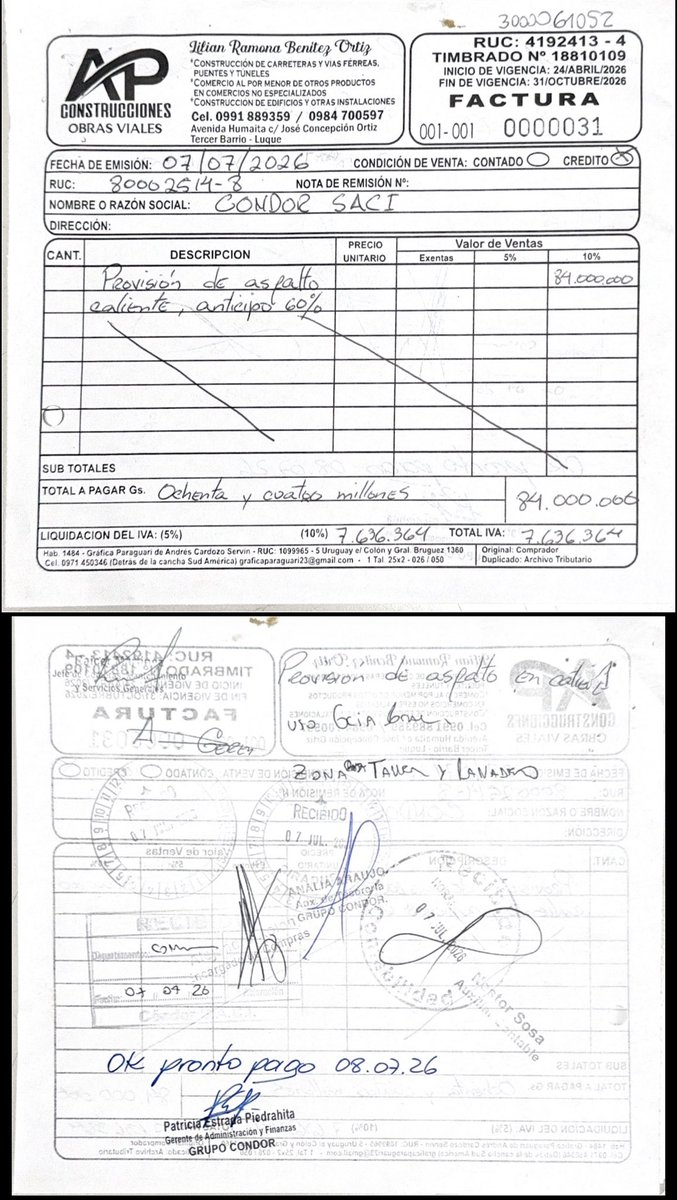 3000061052
AP
CONSTRUCCIONES
OBRAS VIALES
Lilian Ramona Benítez Ortiz
*CONSTRUCCIÓN DE CARRETERAS Y VIAS FÉRREAS,
PUENTES Y TUNELES
*COMERCIO AL POR MENOR DE OTROS PRODUCTOS
EN COMERCIOS NO ESPECIALIZADOS
*CONSTRUCCION DE EDIFICIOS Y OTRAS INSTALACIONES
Cel. 0991 889359 / 0984 700597
Avenida Humaita c/ José Concepción Ortiz
Tercer Barrio - Luque
RUC: 4192413 - 4
TIMBRADO Nº 18810109
INICIO DE VIGENCIA: 24/ABRIL/2026
FIN DE VIGENCIA: 31/OCTUBRE/2026
FACTURA
001-001 0000031
FECHA DE EMISIÓN: 07/07/2026 CONDICIÓN DE VENTA: CONTADO CREDITO X
RUC: 80002514-8 NOTA DE REMISIÓN Nº:
NOMBRE O RAZÓN SOCIAL: CONDOR SACI
DIRECCIÓN:
CANT. DESCRIPCION PRECIO UNITARIO Valor de Ventas
Exentas 5% 10%
Provisión de aspalto 84.000.000
caliente, anticipo 60%
SUB TOTALES
TOTAL A PAGAR Gs. Ochenta y cuatro millones 84.000.000
LIQUIDACION DEL IVA: (5%) (10%) 7.636.364 TOTAL IVA: 7.636.364
Hab. 1484 - Gráfica Paraguari de Andrés Cardozo Servin - RUC: 1099965 - 5 Uruguay e/ Colón y Gral. Bruguez 1360
Cel. 0971 450346 (Detras de la cancha Sud América) graficaparaguari23@gmail.com - 1 Tal. 25x2 - 026 / 050
Original: Comprador
Duplicado: Archivo Tributario
y Servicios Generales
Provision de aspalto en
ZONA TALLER Y LAVADERO
RECIBIDO
07 JUL.
AMALIA ARAUJO
Aux. de Tesorería
GRUPO CONDOR
07 JUL 2026
Contabilidad
Nestor Sosa
Departamento:
Compras
Fecha: 07 07 26
OK pronto pago 08.07.26
Patricia Estrada Piedrahita
Gerente de Administración y Finanzas
GRUPO CONDOR